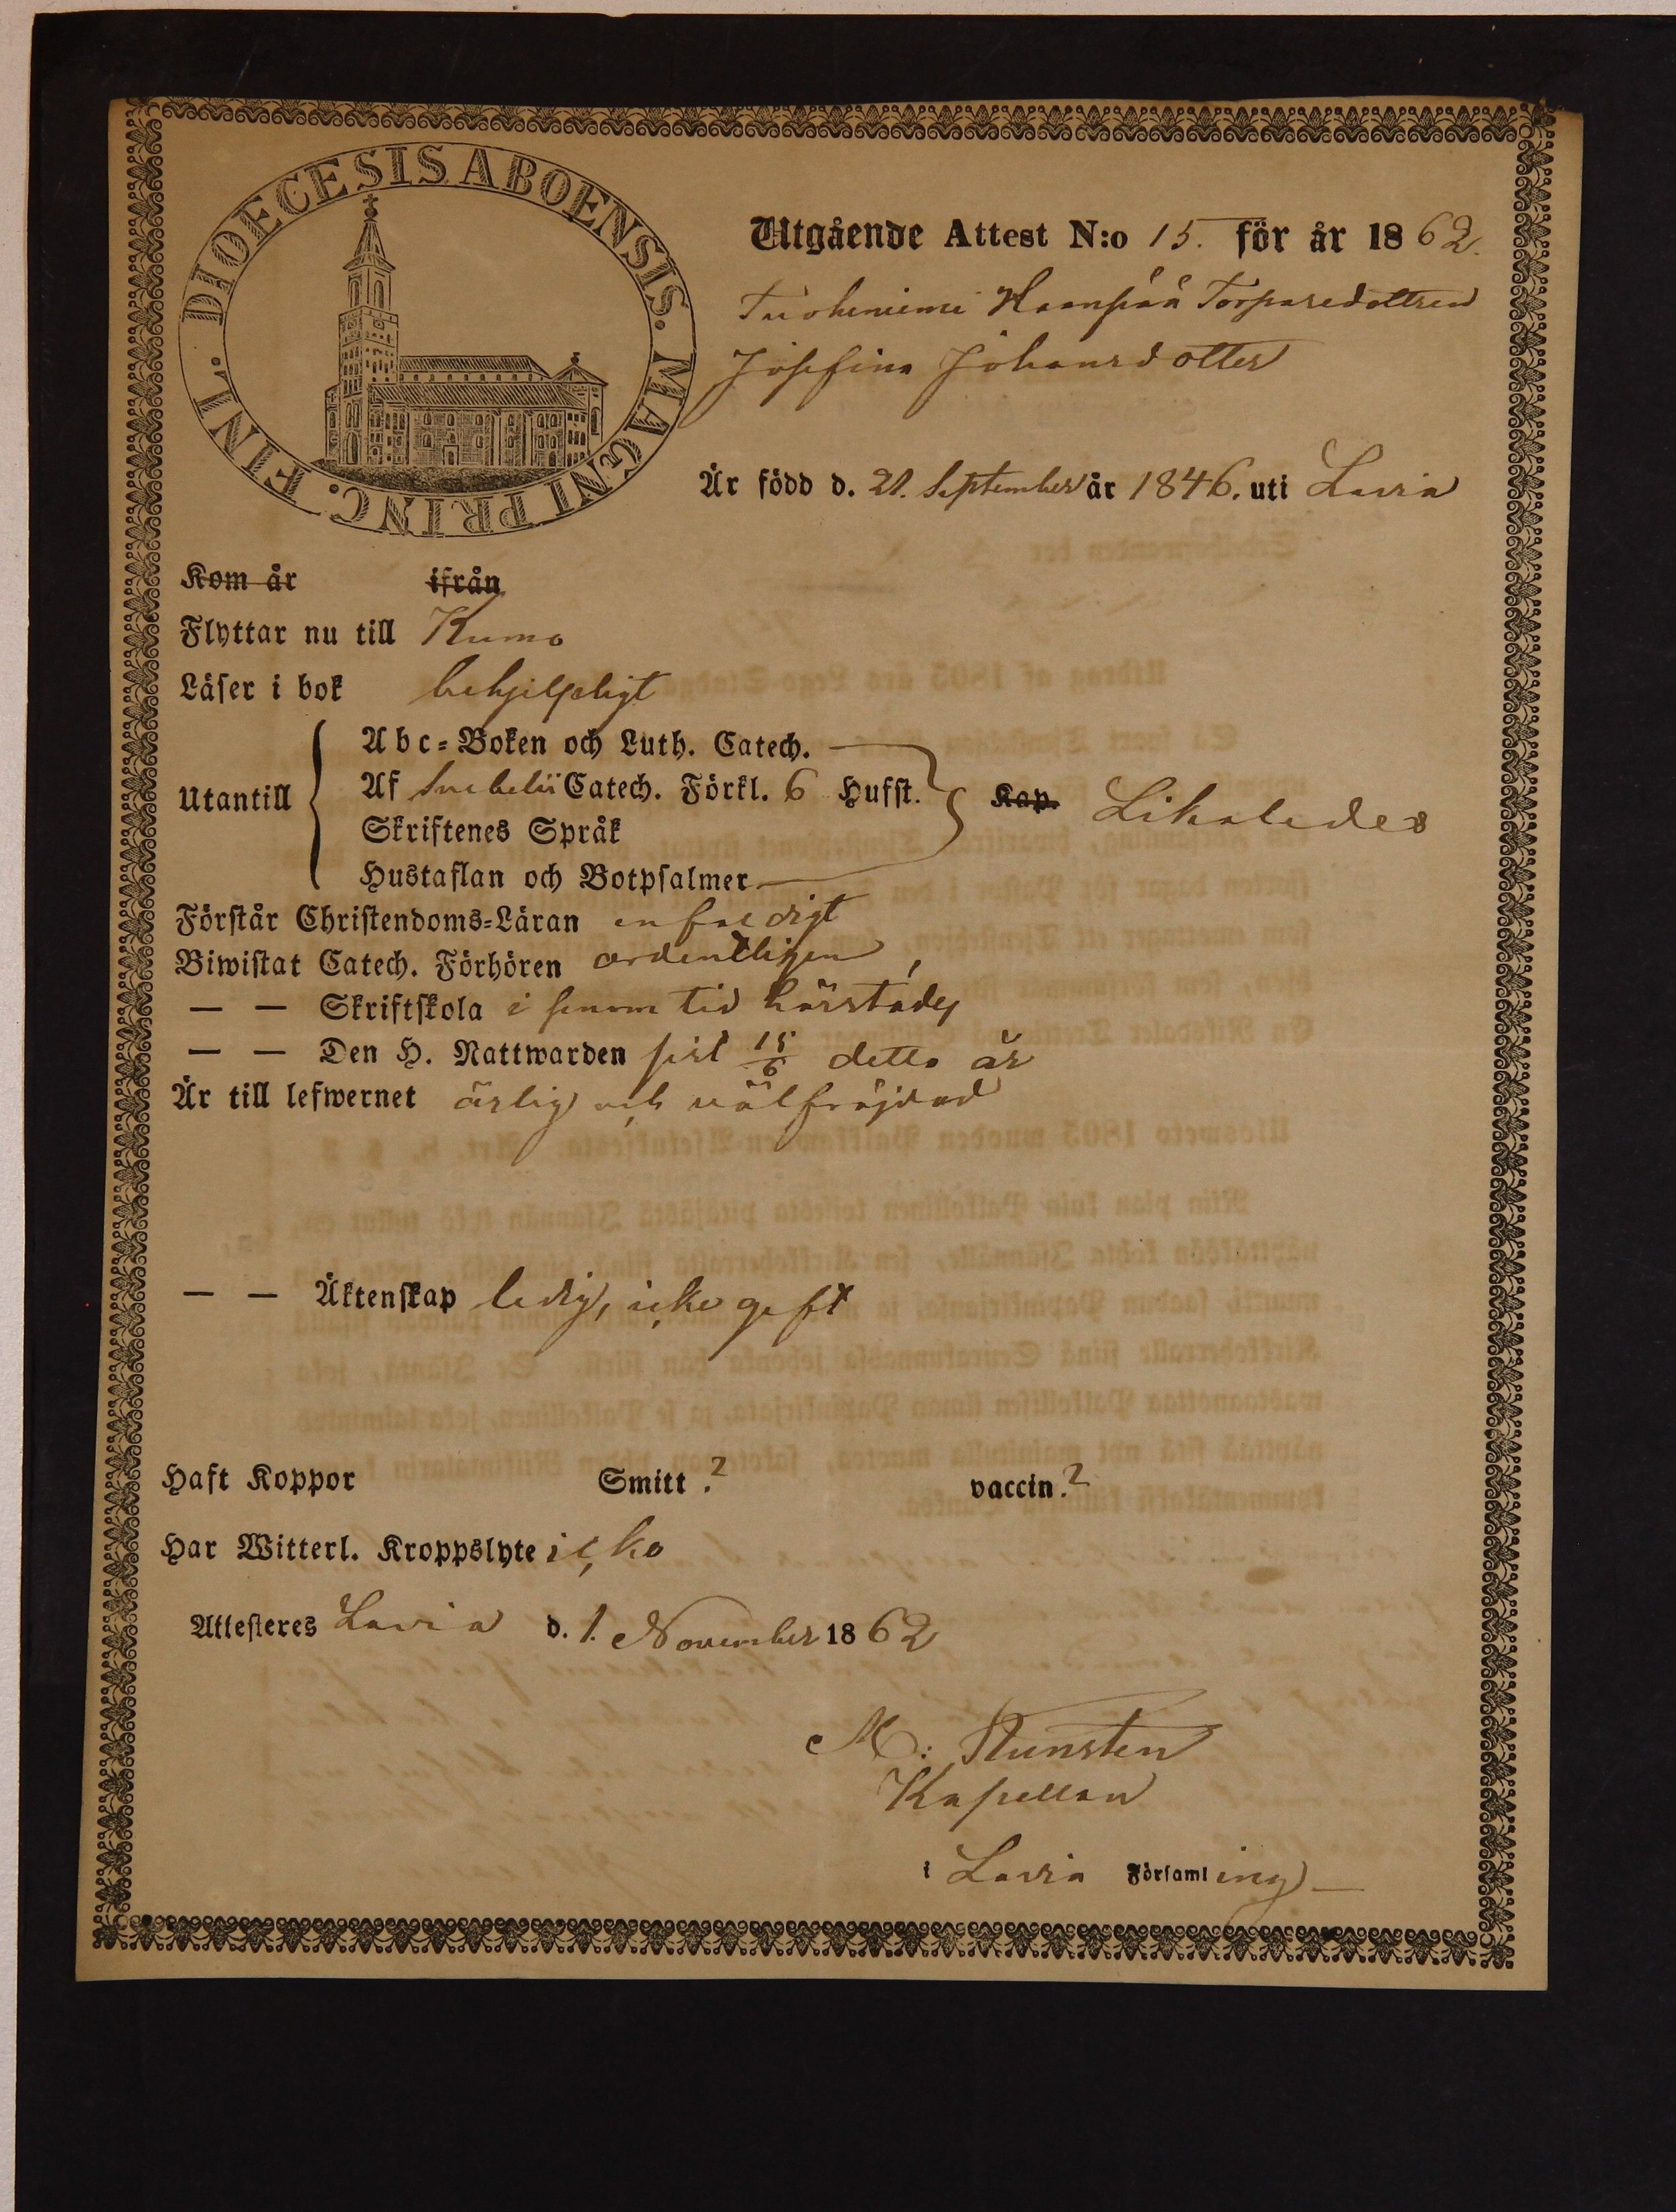 DIOECESIS ABOENSIS. MAGNI PRINC. FINL.
Utgående Attest N:o 15. för år 1862.
Tuohiniemi Haanpää Torparedottren
Josefina Johansdotter
Är född d. 21. September år 1846. uti Lavia
Kom år ifrån
Flyttar nu till Kumo
Läser i bok behjelpligt
Utantill
Abc-Boken och Luth. Catech.
Af Svebelii Catech. Förkl. 6 Hufst. Kap. Likaledes
Skriftenes Språk
Hustaflan och Botpsalmer
Förstår Christendoms-Läran enfaldigt
Biwistat Catech. Förhören ordentligen,
— — Skriftskola i sinom tid härstädes
— — Den H. Nattwarden sist 15/6 detta år
Är till lefwernet ärlig och välfräjdad
— — Äktenskap ledig, icke gift
Haft Koppor Smitt.? vaccin.?
Har Witterl. Kroppslyte icke
Attesteres Lavia d. 1. November 1862
Kapellan
i Lavia Församling